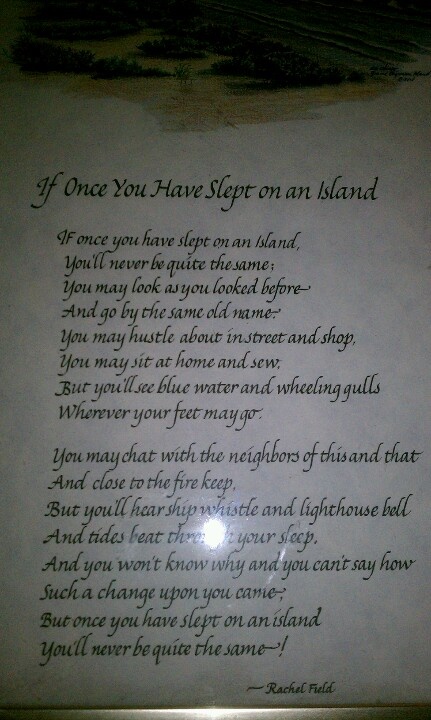 If Once You Have Slept on an Island
If once you have slept on an Island,
You'll never be quite the same;
You may look as you looked before
And go by the same old name.
You may hustle about in street and shop,
You may sit at home and sew,
But you'll see blue water and wheeling gulls
Wherever your feet may go.
You may chat with the neighbors of this and that
And close to the fire keep,
But you'll hear ship whistle and lighthouse bell
And tides beat through your sleep.
And you won't know why and you can't say how
Such a change upon you came,
But once you have slept on an island
You'll never be quite the same!
~ Rachel Field